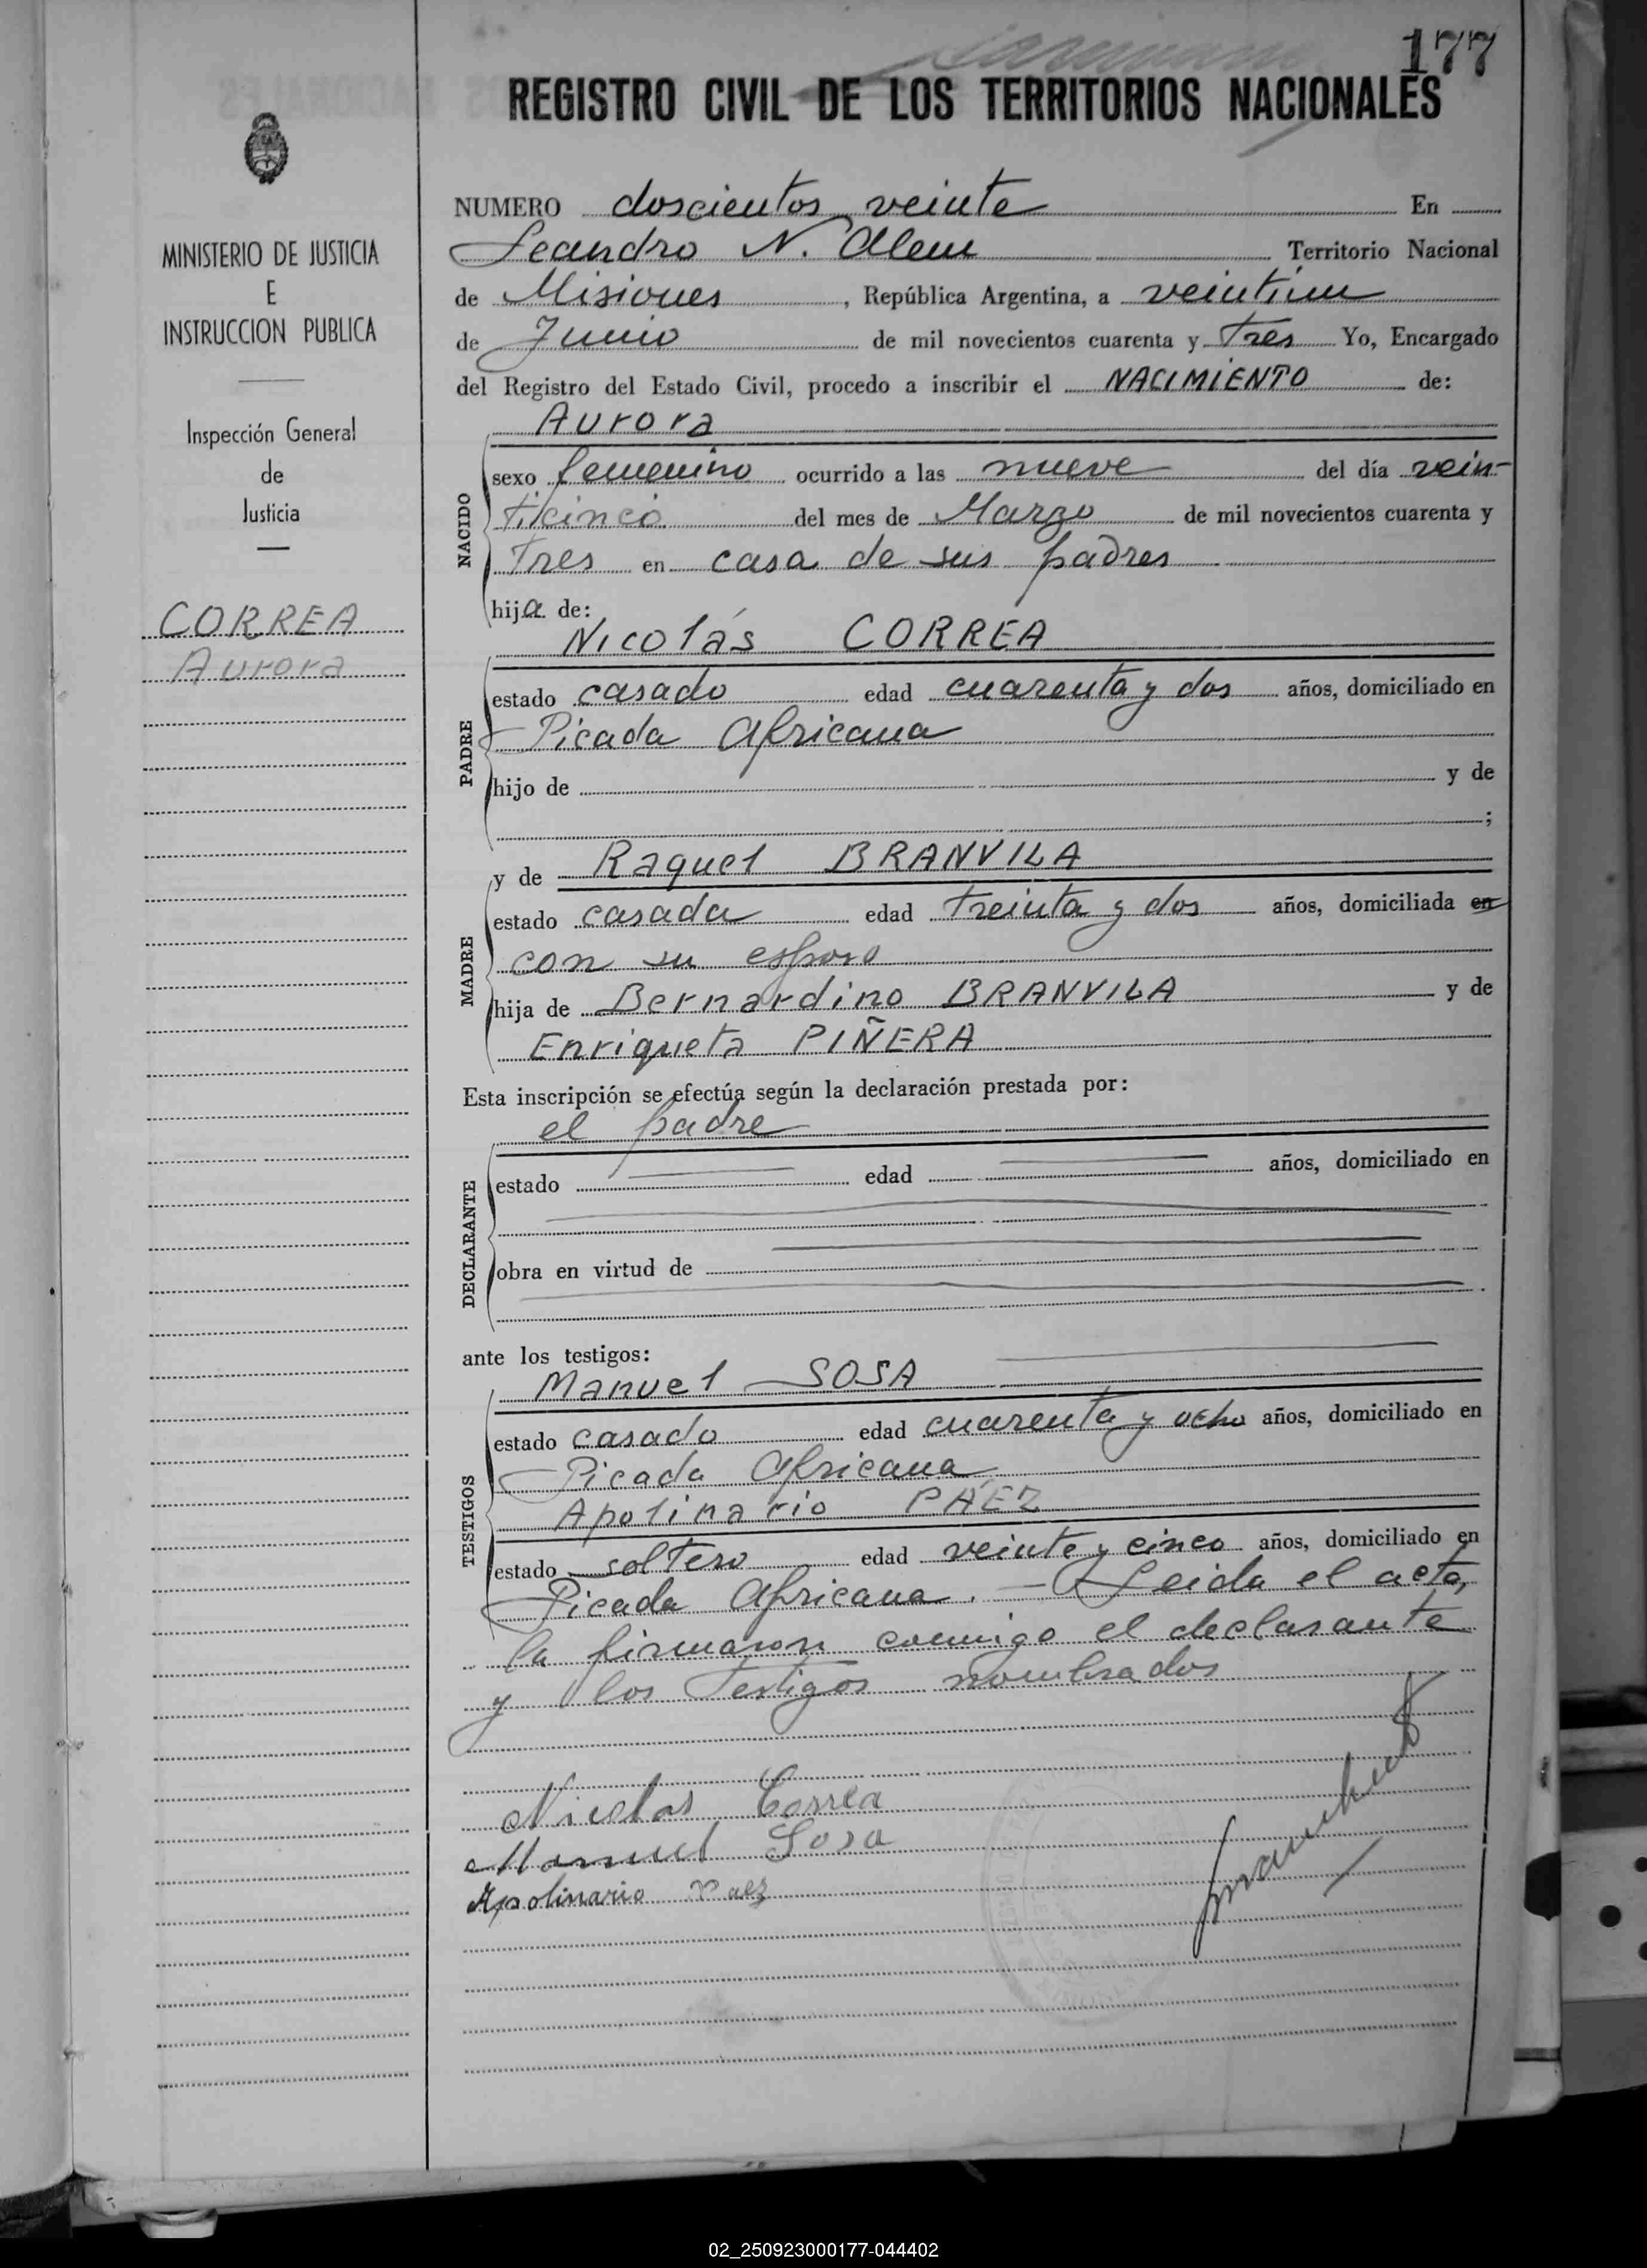 177
REGISTRO CIVIL DE LOS TERRITORIOS NACIONALES
MINISTERIO DE JUSTICIA
E
INSTRUCCION PUBLICA
Inspección General
de
Justicia
CORREA
Aurora
NUMERO doscientos veinte En
Leandro N. Alem Territorio Nacional
de Misiones, República Argentina, a veintiun
de Junio de mil novecientos cuarenta y tres Yo, Encargado
del Registro del Estado Civil, procedo a inscribir el NACIMIENTO de:
Aurora
NACIDO
sexo femenino ocurrido a las nueve del día vein-
ticinco del mes de Marzo de mil novecientos cuarenta y
tres en casa de sus padres
hija de:
Nicolás CORREA
PADRE
estado casado edad cuarenta y dos años, domiciliado en
Picada Africana
hijo de y de
;
y de Raquel BRANVILA
MADRE
estado casada edad treinta y dos años, domiciliada en
con su esposo
hija de Bernardino BRANVILA y de
Enriqueta PIÑERA
Esta inscripción se efectúa según la declaración prestada por:
el padre
DECLARANTE
estado edad años, domiciliado en
obra en virtud de
ante los testigos:
Manuel SOSA
TESTIGOS
estado casado edad cuarenta y ocho años, domiciliado en
Picada Africana
Apolinario PÁEZ
estado soltero edad veinte y cinco años, domiciliado en
Picada Africana. — Leida el acta,
la firmaron conmigo el declarante
y los testigos nombrados
Nicolas Correa
Manuel Sosa
Apolinario Paez
02_250923000177-044402